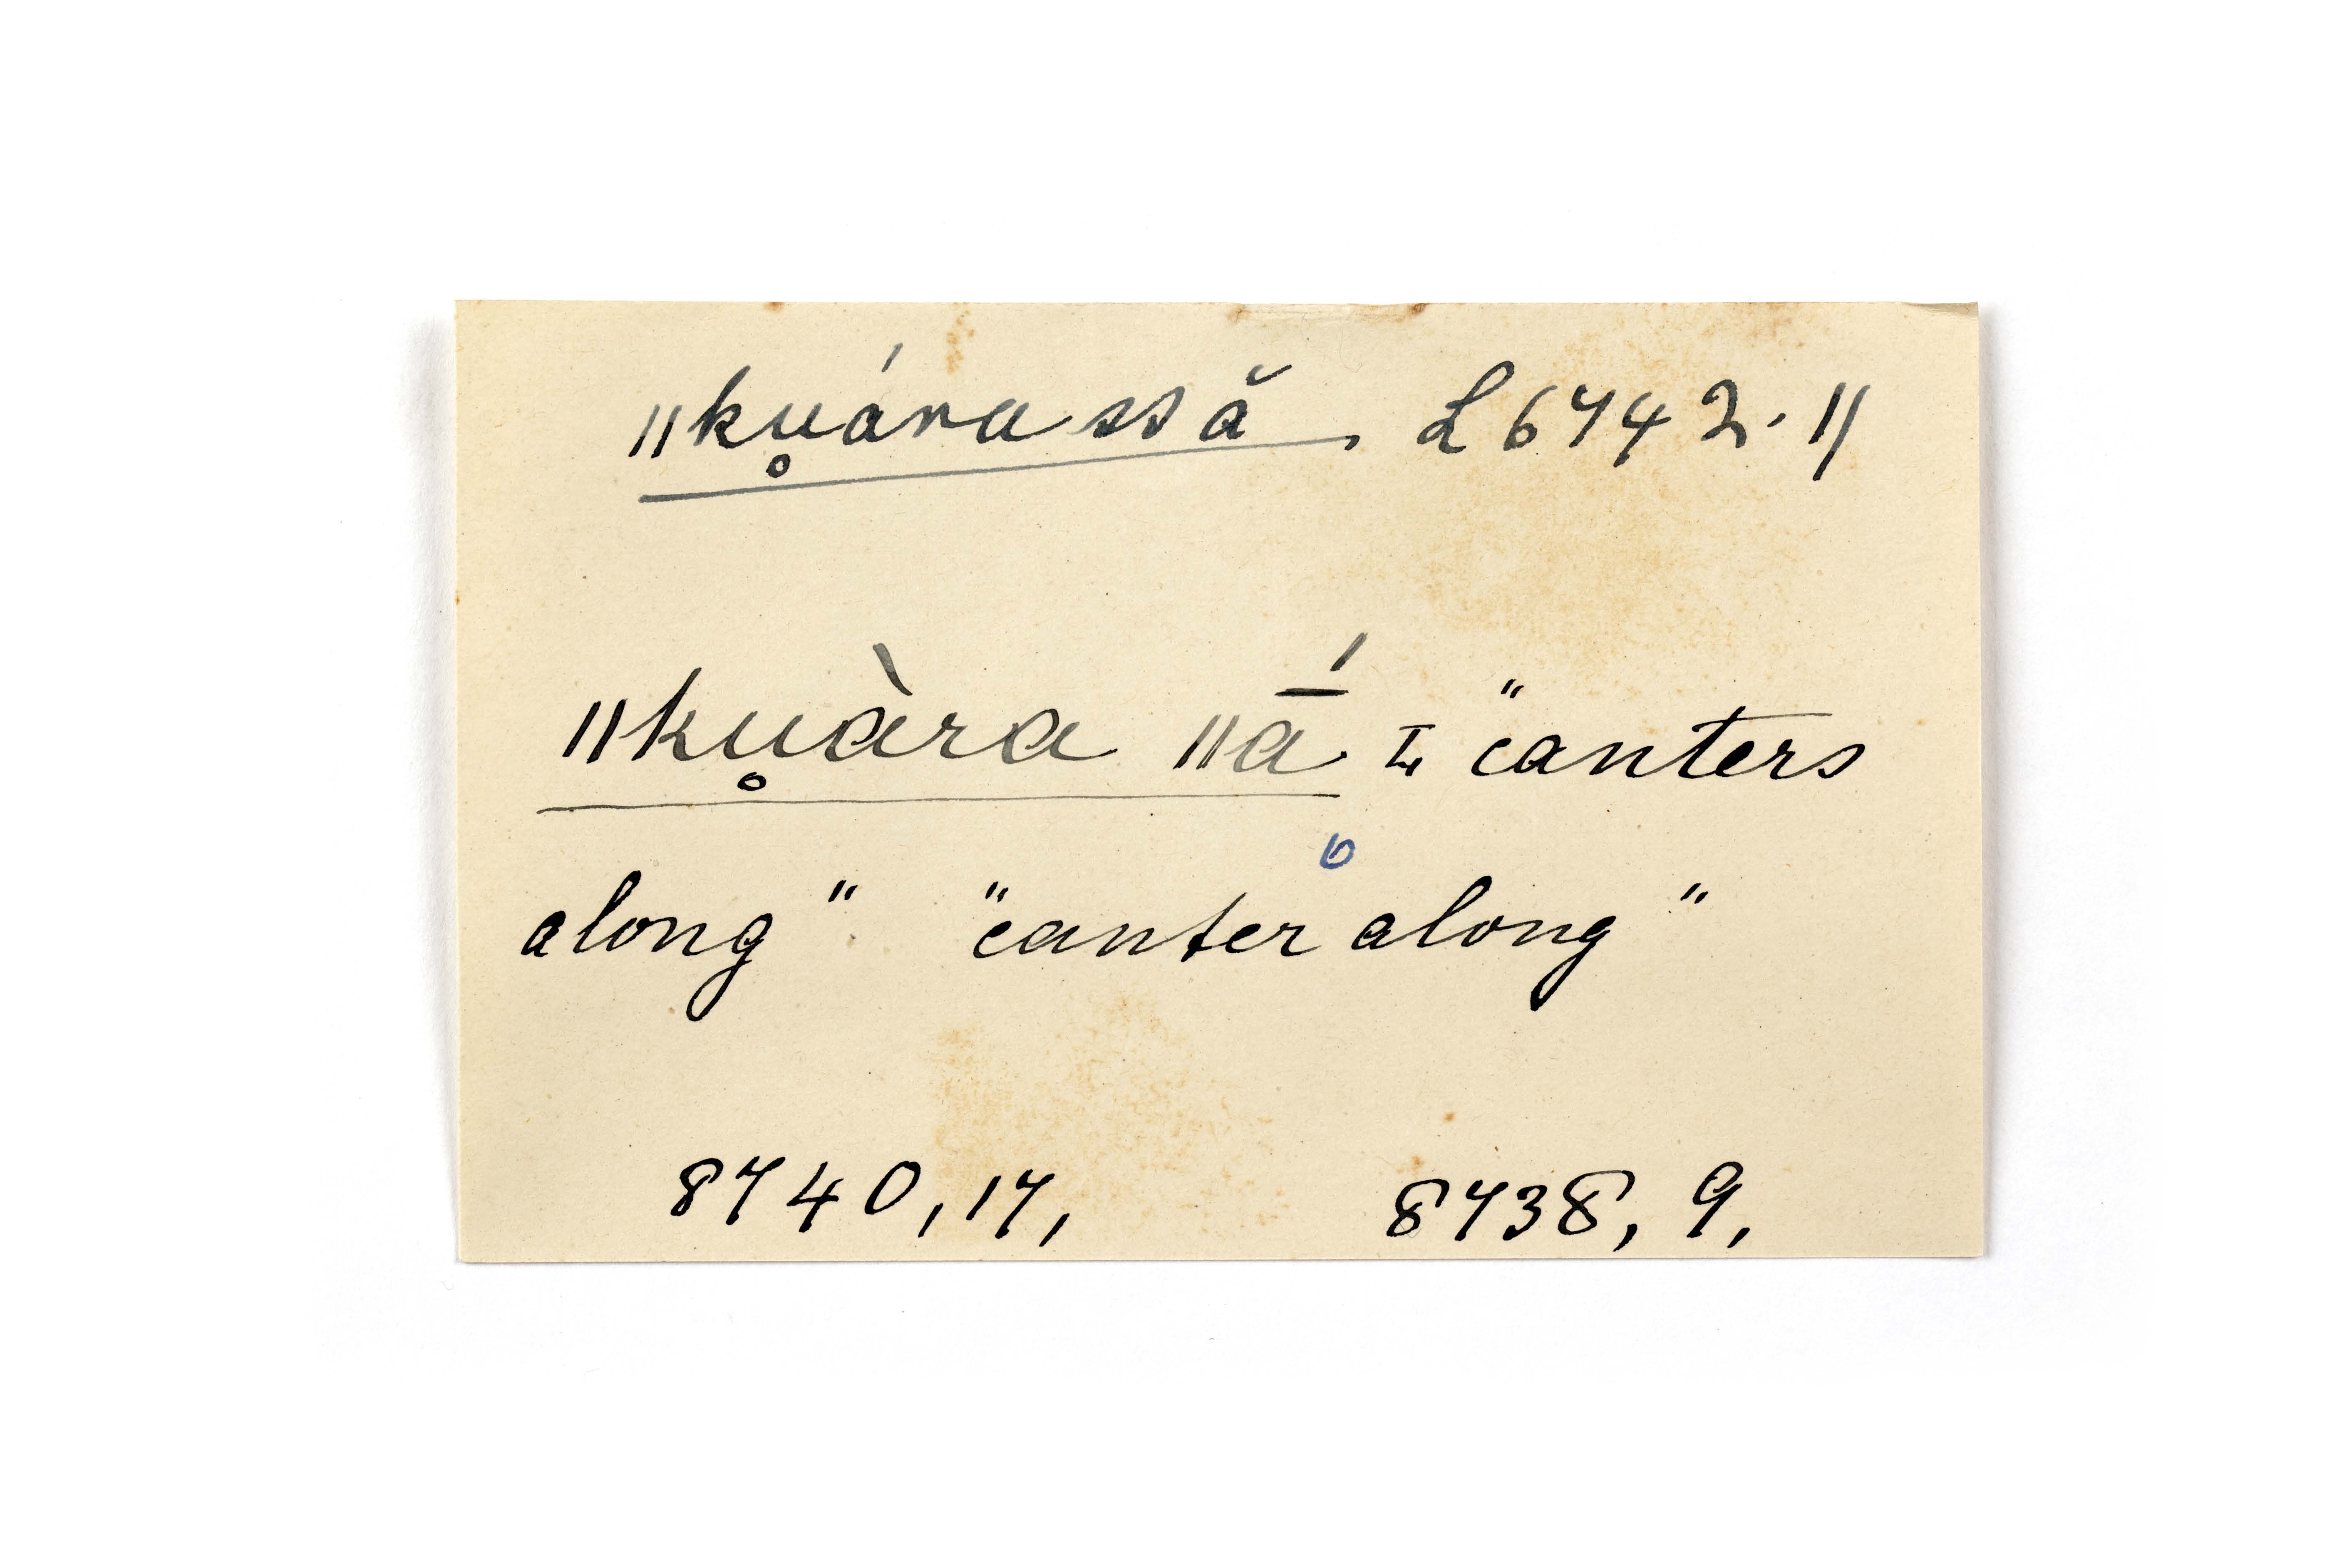 ǁku̥ára ssă. L 6742. 11
ǁku̥àra ǁā́. I. "canters
6
along" "canter along"
8740, 17, 8738, 9,